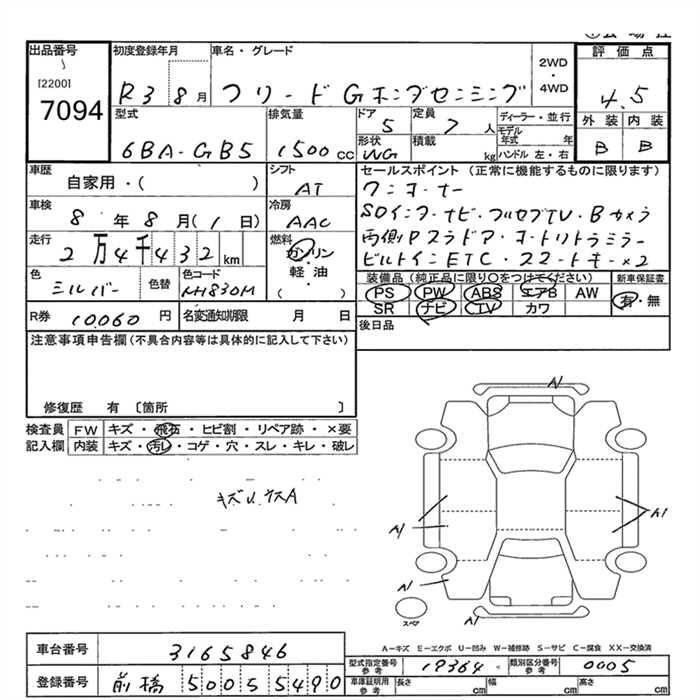 出品番号
[2200]
7094
初度登録年月
R3 8月
車名・グレード
フリード Gホンダセンシング
2WD
・
4WD
評価点
4.5
外装 内装
B B
型式
6BA-GB5
排気量
1500 cc
ドア
5
定員
7 人
形状
WG
積載
kg
ディーラー・並行
モデル年式 年
ハンドル 左・右
車歴
自家用・( )
シフト
AT
車検
8年 8月 (1日)
冷房
AAC
走行
2万4千432 km
燃料
ガソリン
軽油
( )
色
シルバー
色替
色コード
NH830M
R券 10,060 円
名変通知期限 月 日
セールスポイント (正常に機能するものに限ります)
ワンオーナー
SDインターナビ・フルセグTV・Bカメラ
両側Pスラドア・オートリトラミラー
ビルトインETC・スマートキー×2
装備品 (純正品に限り〇をつけてください)
新車保証書
PS PW ABS エアB AW
SR ナビ TV カワ
有・無
後日品
注意事項申告欄(不具合内容等は具体的に記入して下さい)
修復歴 有 〔箇所 〕
検査員 FW キズ・飛石・ヒビ割・リペア跡・×要
記入欄 内装 キズ・汚レ・コゲ・穴・スレ・キレ・破レ
A1
A1
A1
A1
A1
スペア
A-キズ E-エクボ U-凹み W-補修跡 S-サビ C-腐食 XX-交換済
車台番号 3165846
登録番号 前橋 500 5 5490
型式指定番号 参考 19364
類別区分番号 参考 0005
車庫証明用 参考 長さ cm 幅 cm 高さ cm